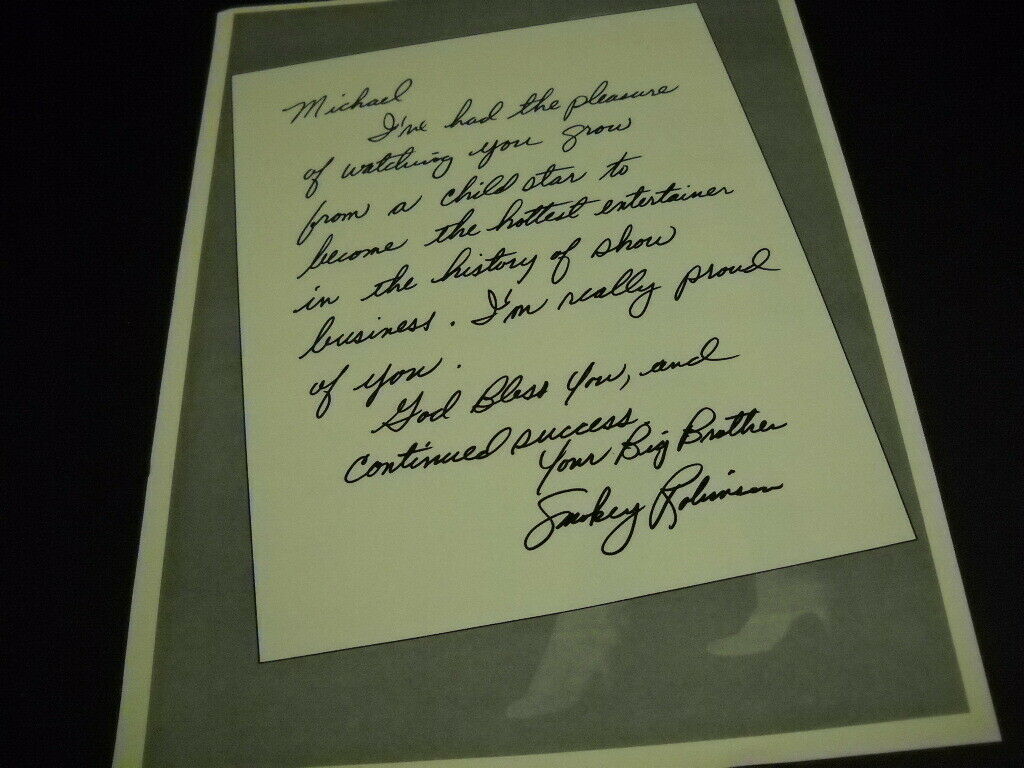 Michael
I've had the pleasure
of watching you grow
from a child star to
become the hottest entertainer
in the history of show
business. I'm really proud
of you.
God Bless You, and
continued success
Your Big Brother
Smokey Robinson